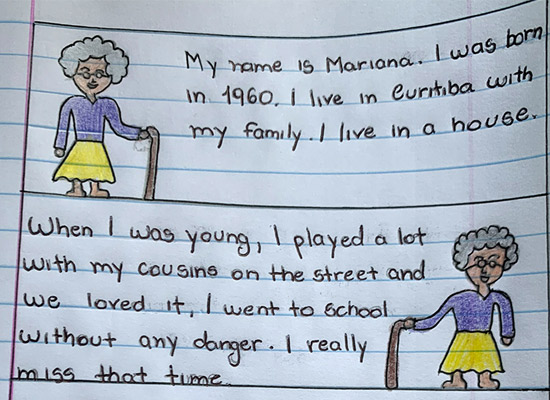 My name is Mariana. I was born
in 1960. i live in Curitiba with
my family. I live in a house.
When I was young, I played a lot
with my cousins on the street and
we loved it, I went to school
without any danger. I really
miss that time.